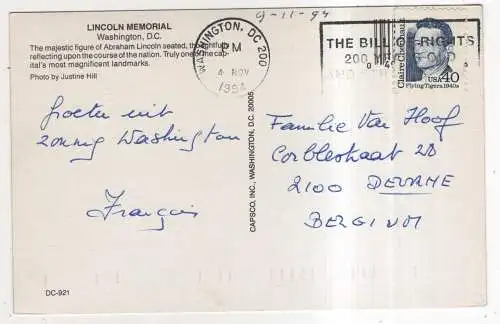 LINCOLN MEMORIAL
Washington, D.C.
The majestic figure of Abraham Lincoln seated, thoughtfully
reflecting upon the course of the nation. Truly one of the cap-
ital's most magnificent landmarks.
Photo by Justine Hill
9-11-94
WASHINGTON, DC 200
PM
4 NOV
1994
THE BILL OF RIGHTS
200
Claire Chennault
USA 40
Flying Tigers 1940s
groeten uit
zonnig Washington
François
CAPSCO, INC., WASHINGTON, D.C. 20005
Familie Van Hoof
2100 DEURNE
BERGIUM
DC-921